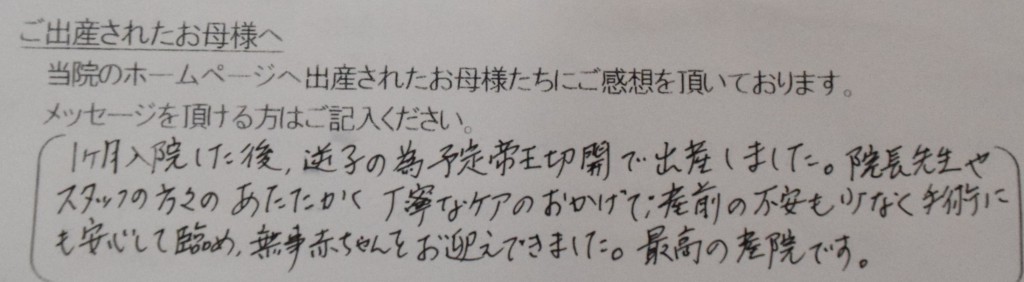 ご出産されたお母様へ
当院のホームページへ出産されたお母様たちにご感想を頂いております。
メッセージを頂ける方はご記入ください。
1ヶ月入院した後、逆子の為予定帝王切開で出産しました。院長先生や
スタッフの方々のあたたかく丁寧なケアのおかげで、産前の不安も少なく手術に
も安心して臨め、無事赤ちゃんをお迎えできました。最高の産院です。